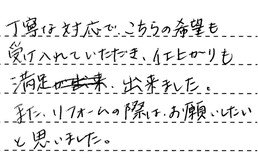 丁寧な対応で、こちらの希望も
受け入れていただき、仕上がりも
満足出来ました。
また、リフォームの際は、お願いしたい
と思いました。